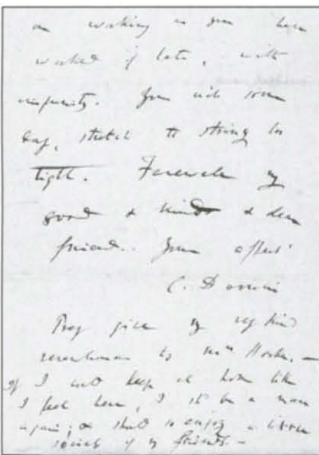 on working as you have
worked of late, with
impunity. You will some
day, stretch the string too
tight. Farewell my
good & kind & dear
friend. Your affect
C. Darwin
Pray give my very kind
remembrances to Mrs Hooker. —
If I could keep at home like
I feel here, I shd be a man
again; & shall so enjoy a little
society of my friends. —